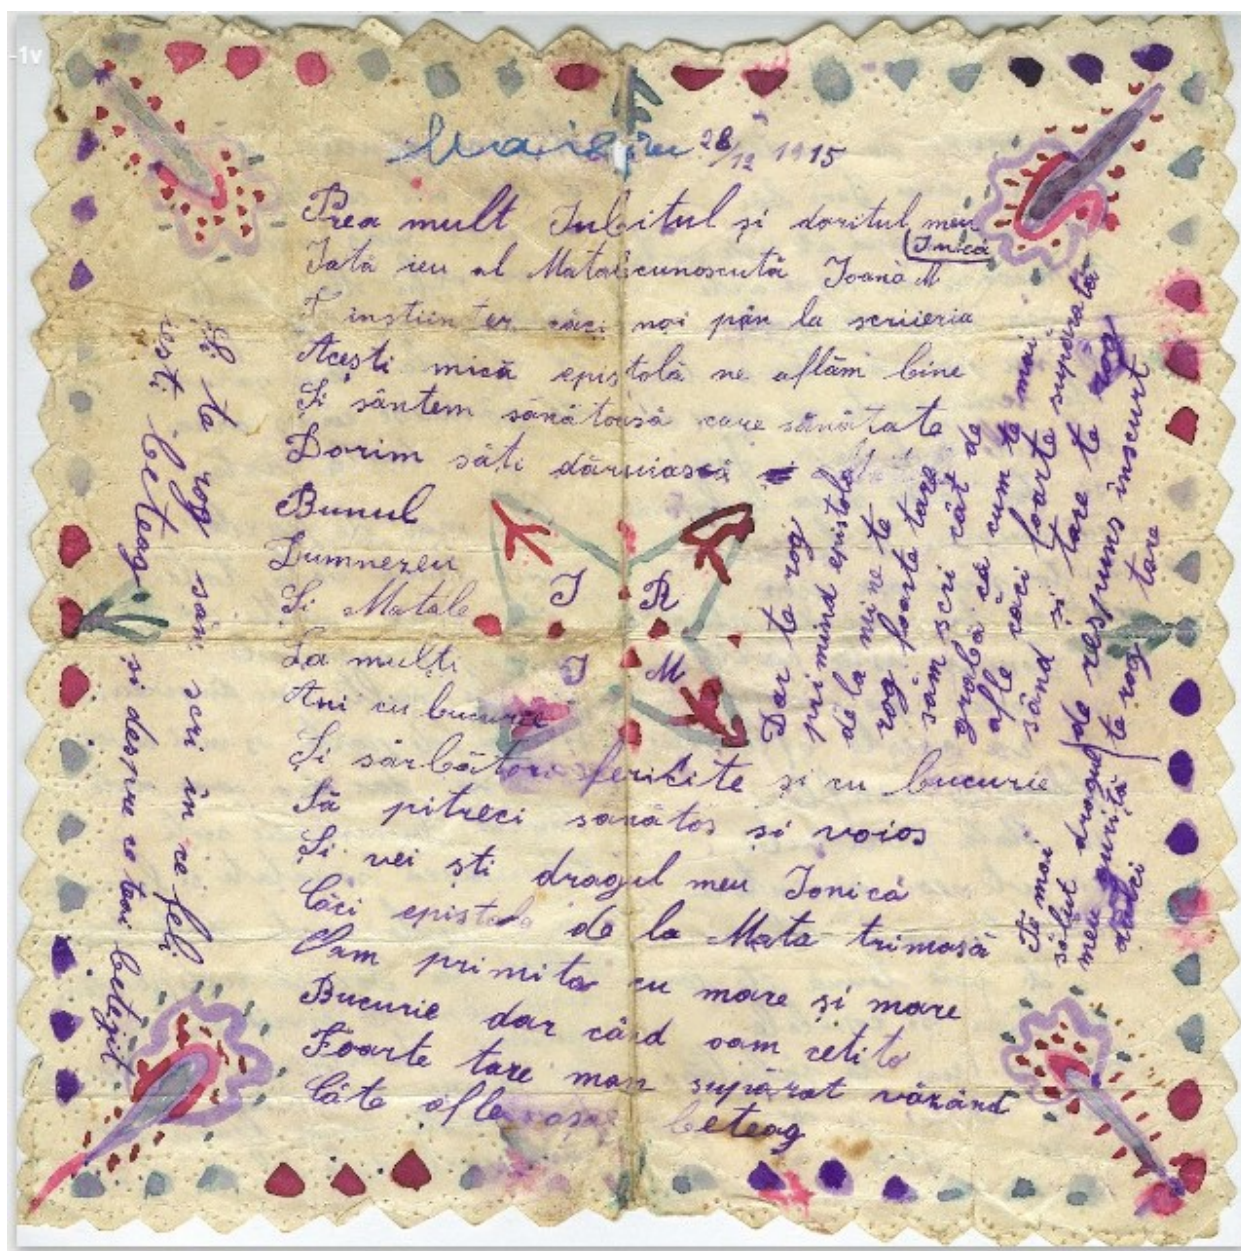 -1v
28/12 1915
Prea mult Iubitul și doritul meu
Ionică
Iată ieu al Matale cunoscută Ioana M
căci noi pân la scriieria
Acești mică epistolă ne aflăm bine
Și sântem sănătoasă care sănătate
Dorim săți dăruiască
Bunul
Dumnezeu
Și Matale
La mulți
Ani cu bucurie
Și sărbători fericite și cu bucurie
Să pitreci sănătos și voios
Și vei ști dragul meu Ionică
Căci epistola de la Mata trimasă
Oam primito cu mare și mare
Bucurie dar când oam cetito
Foarte tare mam supărat văzând
Câte afle beteag
I R
I M
Dar te rog
primind epistola
de la mine te
rog foarte tare
săm scri cât de
grabă că cum te mai
afle căci foarte supărată
sând și tare te rog
de respuns înscurt
te rog tare
Te mai
sălut dragul
meu guriță
dulci
Și ta rog săm scri în ce feli
iesti beteag și despre ce toai betejit